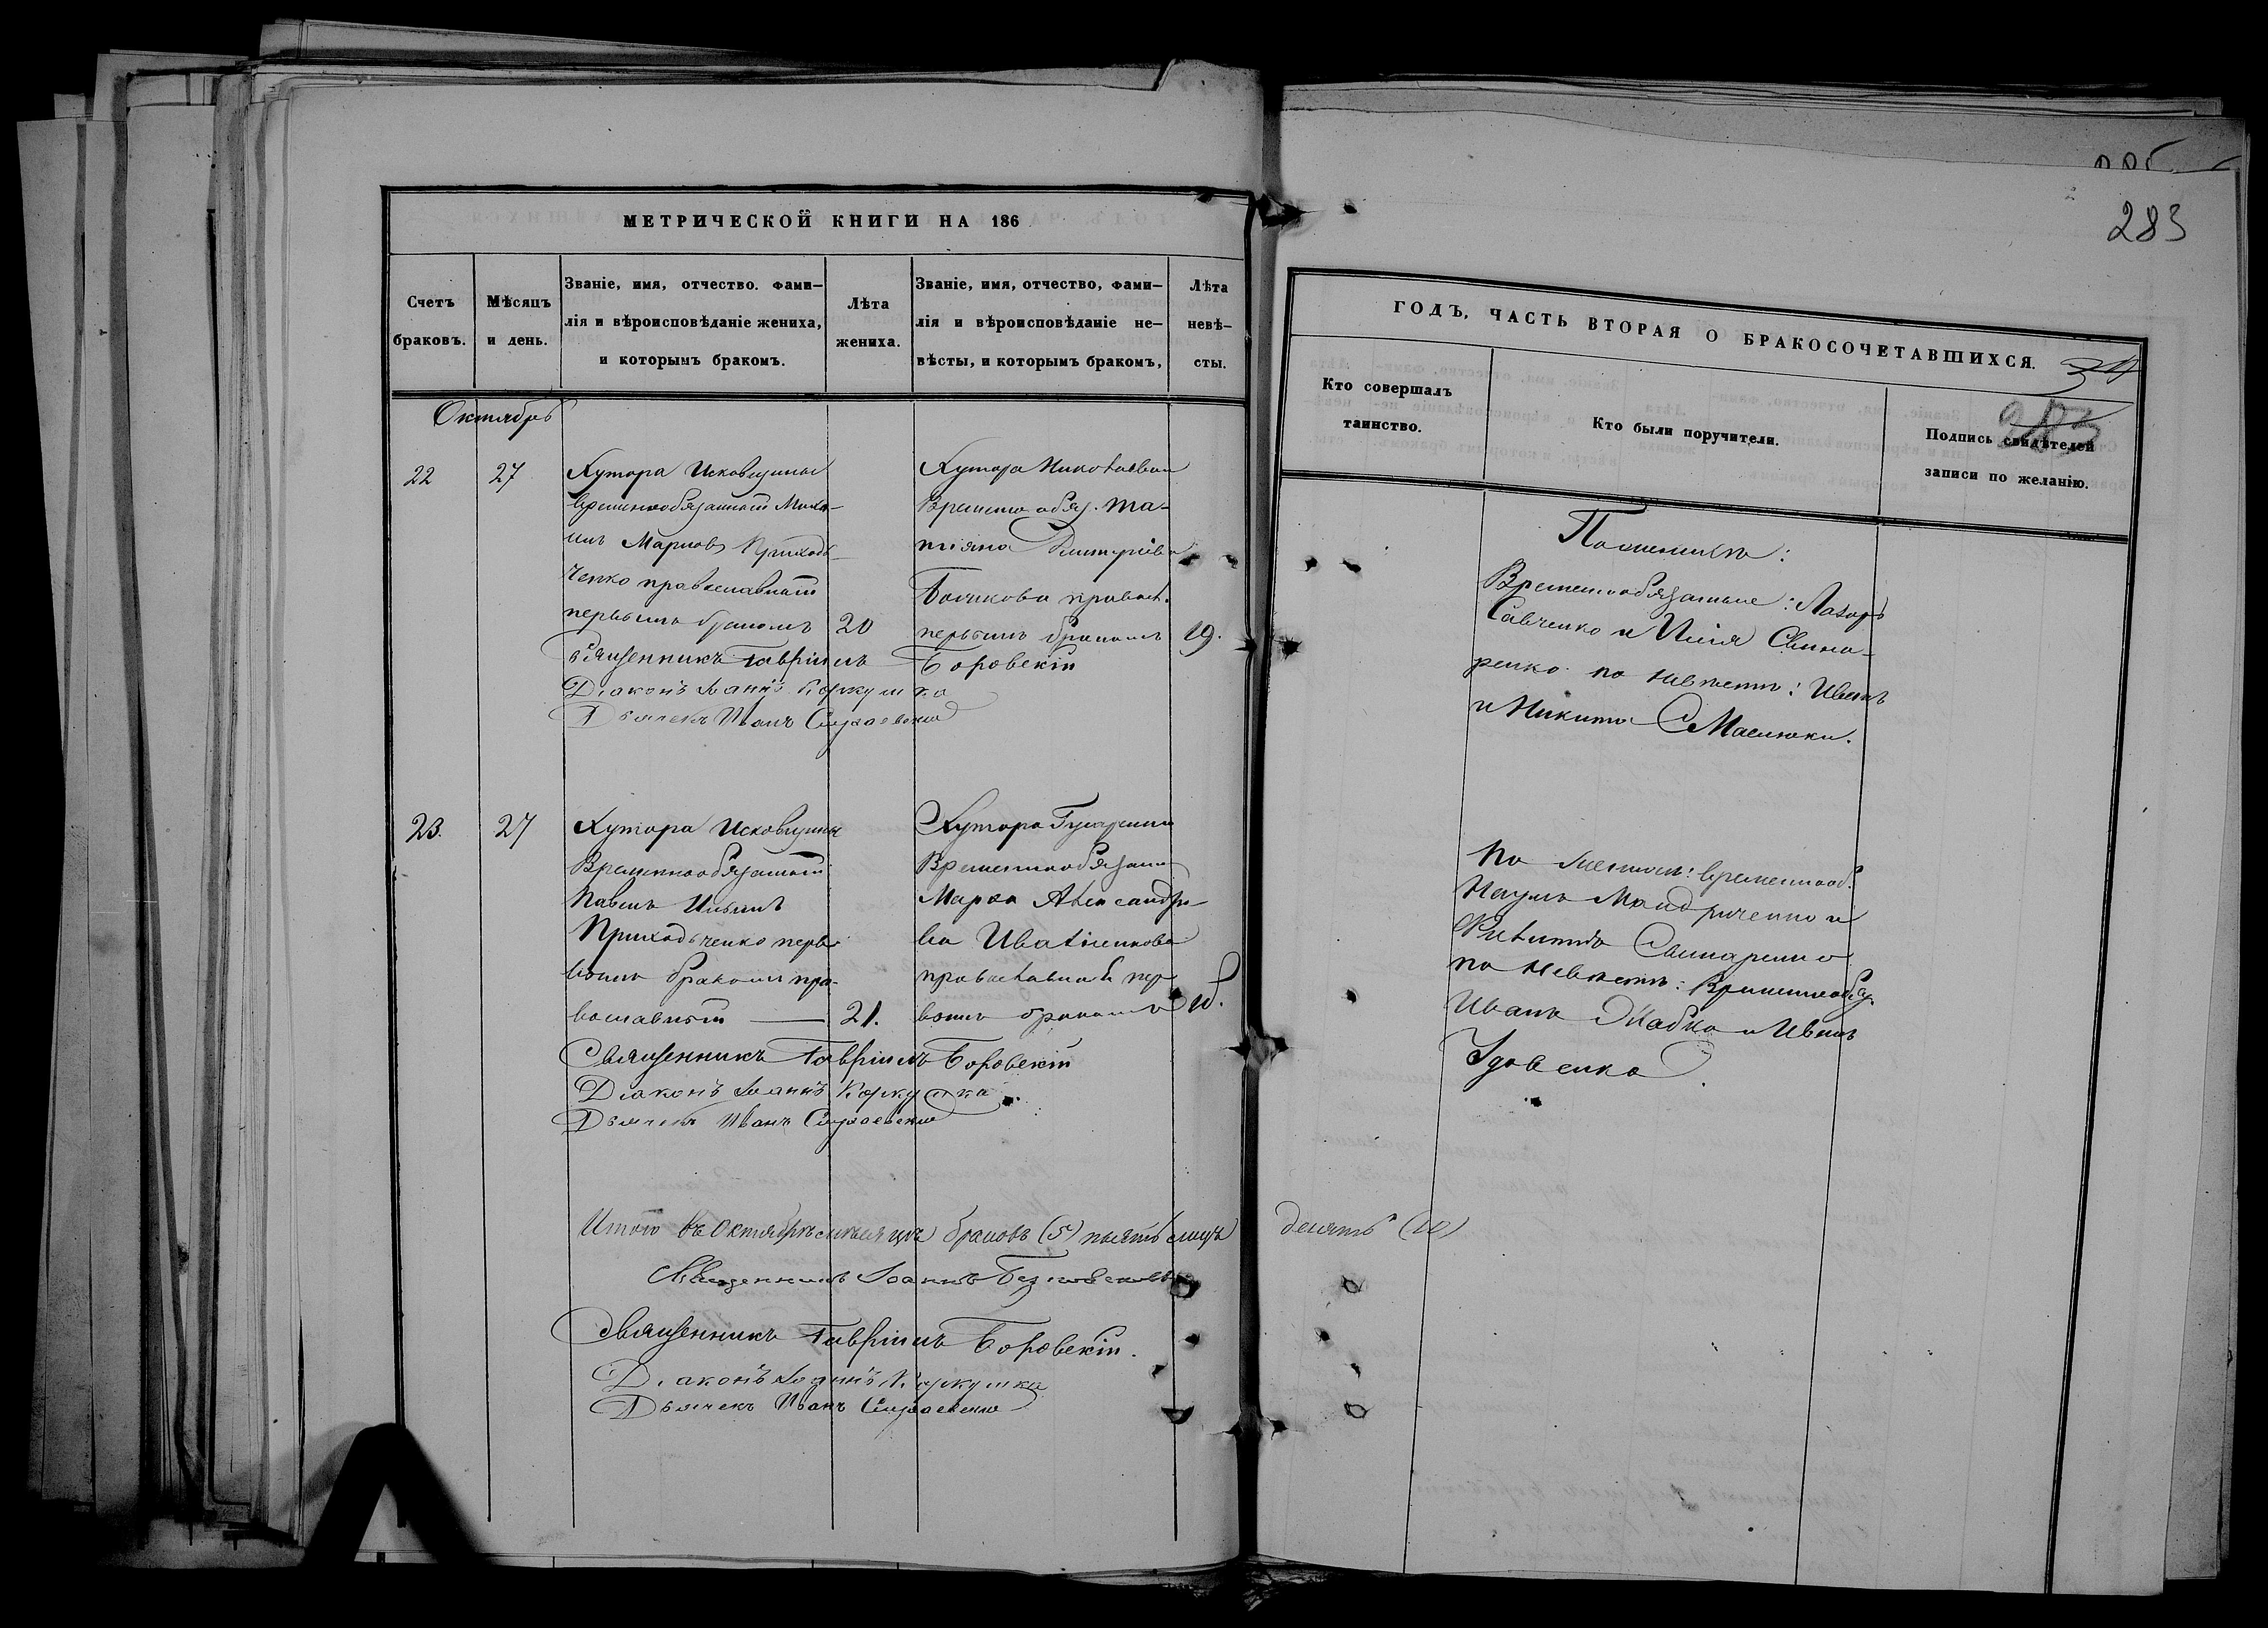 МЕТРИЧЕСКОЙ КНИГИ НА 186
Счетъ браковъ.
Мѣсяцъ и день.
Званіе, имя, отчество. фами-
лія и вѣроисповѣданіе жениха,
и которымъ бракомъ.
Лѣта жениха.
Званіе, имя, отчество, фами-
лія и вѣроисповѣданіе не-
вѣсты, и которымъ бракомъ,
Лѣта невѣ-
сты.
Октябрь
22
27
Хутора Исковщины
временнообязанный Миха-
илъ Марковъ Приходь-
ченко православный
первымъ бракомъ
20
Хутора Николаевки
Временно обяз. Та-
тіяна Димитріева
православ.
первымъ бракомъ
19.
Священникъ Гавріилъ Боровскій
Діаконъ Іоаннъ Коркушка
Дьячекъ Иванъ
23.
27
Хутора Исковщины
Временнообязанный
Павелъ Ильинъ
Приходьченко пер-
вымъ бракомъ пра-
вославный
21.
Хутора
Временнообязан
Марѳа Александро-
ва
православной пер
вымъ бракомъ
Священникъ Гавріилъ Боровскій
Діаконъ Іоаннъ Коркушка
Дьячекъ Иванъ
Итого въ Октябрѣ мѣсяцѣ браковъ (5) пьять лицъ десять (10)
Священникъ Іоаннъ
Священникъ Гавріилъ Боровскій.
Діаконъ Іоаннъ Коркушка
Дьячекъ Иванъ
283
ГОДЪ, ЧАСТЬ ВТОРАЯ О БРАКОСОЧЕТАВШИХСЯ.
Кто совершалъ
таинство.
Кто были поручители.
Подпись свидѣтелей
записи по желанію.
34
283
По женихѣ:
Временнообязанные: Лазорь
Савченко и Илія Свина-
ренко по невѣстѣ: Иванъ
и Никита Маслюки.
По женихѣ: временнооб.
Наумъ Мандриченко и
Свинаренко
по невѣстѣ: Временнообяз.
Иванъ Жабко и Иванъ
Удовенко